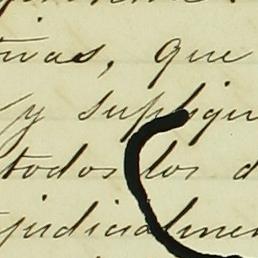 ivas, que
y supliqu
todos los d
judicialmen